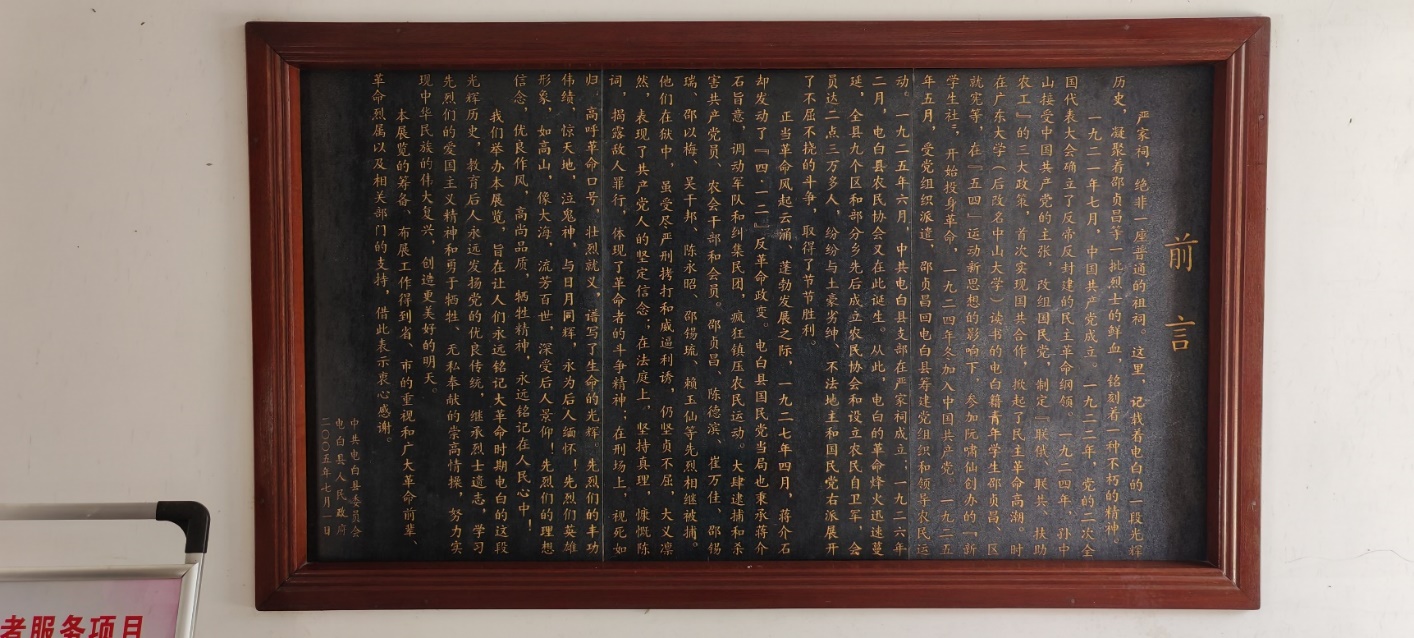 前言
严家祠，绝非一座普通的祖祠，这里，记载着电白的一段光辉
历史，凝聚着邵贞昌等一批烈士的鲜血，铭刻着一种不朽的精神。
一九二一年七月，中国共产党成立。一九二二年，党的二次全
国代表大会确立了反帝反封建的民主革命纲领。一九二四年，孙中
山接受中国共产党的主张，改组国民党，制定『联俄、联共、扶助
农工』的三大政策，首次实现国共合作，掀起了民主革命高潮。时
在广东大学（后改名中山大学）读书的电白籍青年学生邵贞昌、区
就宪等，在『五四』运动新思想的影响下，参加阮啸仙创办的『新
学生社』，开始投身革命，一九二四年冬加入中国共产党。一九二五
年五月，受党组织派遣，邵贞昌回电白县筹建党组织和领导农民运
动。一九二五年六月，中共电白县支部在严家祠成立；一九二六年
二月，电白县农民协会又在此诞生。从此，电白的革命烽火迅速蔓
延，全县九个区和部分乡先后成立农民协会和设立农民自卫军，会
员达二点三万多人，纷纷与土豪劣绅、不法地主和国民党右派展开
了不屈不挠的斗争，取得了节节胜利。
正当革命风起云涌、蓬勃发展之际，一九二七年四月，蒋介石
却发动了『四·一二』反革命政变。电白县国民党当局也秉承蒋介
石旨意，调动军队和纠集民团，疯狂镇压农民运动。大肆逮捕和杀
害共产党员、农会干部和会员。邵贞昌、陈德滨、崔万佳、邵锡
瑞、邵以梅、吴干邦、陈永昭、邵锡琉、赖玉仙等先烈相继被捕。
他们在狱中，虽受尽严刑拷打和威逼利诱，仍坚贞不屈，大义凛
然，表现了共产党人的坚定信念；在法庭上，坚持真理，慷慨陈
词，揭露敌人罪行，体现了革命者的斗争精神；在刑场上，视死如
归，高呼革命口号，壮烈就义，谱写了生命的光辉。先烈们的丰功
伟绩，惊天地，泣鬼神，与日月同辉，永为后人缅怀！先烈们英雄
形象，如高山，像大海，流芳百世，深受后人景仰！先烈们的理想
信念，优良作风，高尚品质，牺牲精神，永远铭记在人民心中！
我们举办本展览，旨在让人们永远铭记大革命时期电白的这段
光辉历史，教育后人永远发扬党的优良传统，继承烈士遗志，学习
先烈们的爱国主义精神和勇于牺牲、无私奉献的崇高情操，努力实
现中华民族的伟大复兴，创造更美好的明天。
本展览的筹备、布展工作得到省、市的重视和广大革命前辈、
革命烈属以及相关部门的支持，借此表示衷心感谢。
中共电白县委员会
电白县人民政府
二〇〇五年七月一日
者服务项目